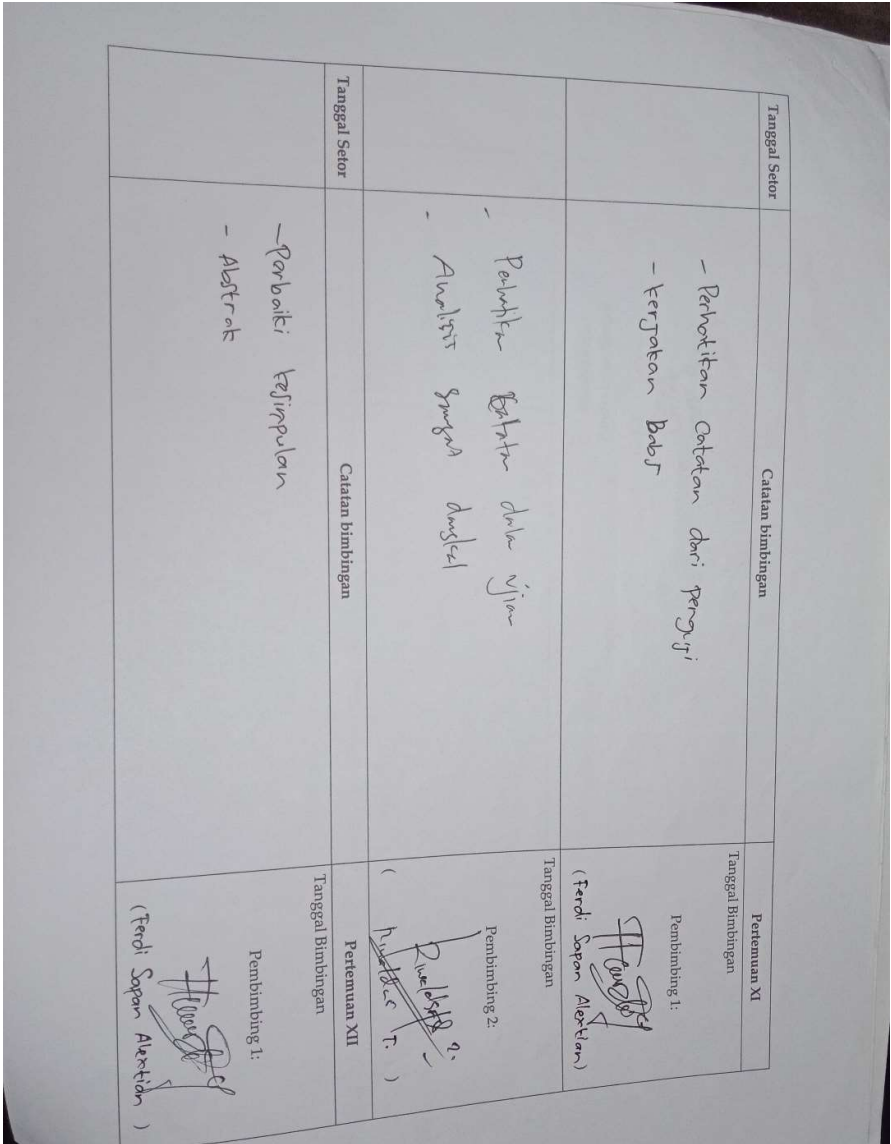 Tanggal Setor
Catatan bimbingan
Pertemuan XI
- Perhatikan catatan dari penguji
- kerjakan Bab 5
Tanggal Bimbingan
Pembimbing 1:
(Ferdi Sapan Alextian)
-
- Analisis sangat dangkal
Tanggal Bimbingan
Pembimbing 2:
( T. )
Tanggal Setor
Catatan bimbingan
Pertemuan XII
- Perbaiki kesimpulan
- Abstrak
Tanggal Bimbingan
Pembimbing 1:
(Ferdi Sapan Alextian )